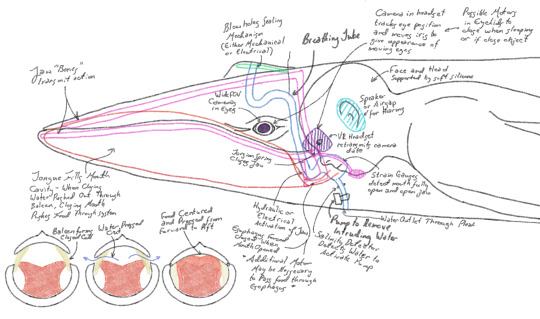 Blowhole Sealing
Mechanism
(Either Mechanical
or Electrical)
Breathing Tube
Camera in headset
tracks eye position
and moves iris to
give appearance of
moving eyes
Possible Motors
in Eyelids to
close when sleeping
or if close object
Jaw "Bones"
Transmit action
Wide FOV
Cameras
in Eyes
Face and Head
Supported by soft silicone
Speaker
or Airgap
for Hearing
VR Headset
retransmits camera
data
Jaw Spring
Closes Jaw
Strain Gauges
detect mouth fully
open and open jaw
Tongue Fills Mouth
Cavity - When Closing
Water Pushed Out Through
Baleen, Closing Mouth
Pushes Food Through System
Hydraulic or
Electrical
Activation of Jaw
Water Outlet Through
Pump to Remove
Intruding Water
Salinity Detector
Detects Water to
Activate Pump
Esophagus
Closed When
Mouth Opened
* Additional Motor
May be Necessary
to Pass food through
Esophagus *
Baleen forms
Closed
Water Pressed
Out
Food Centured
and Pressed from
Forward to Aft